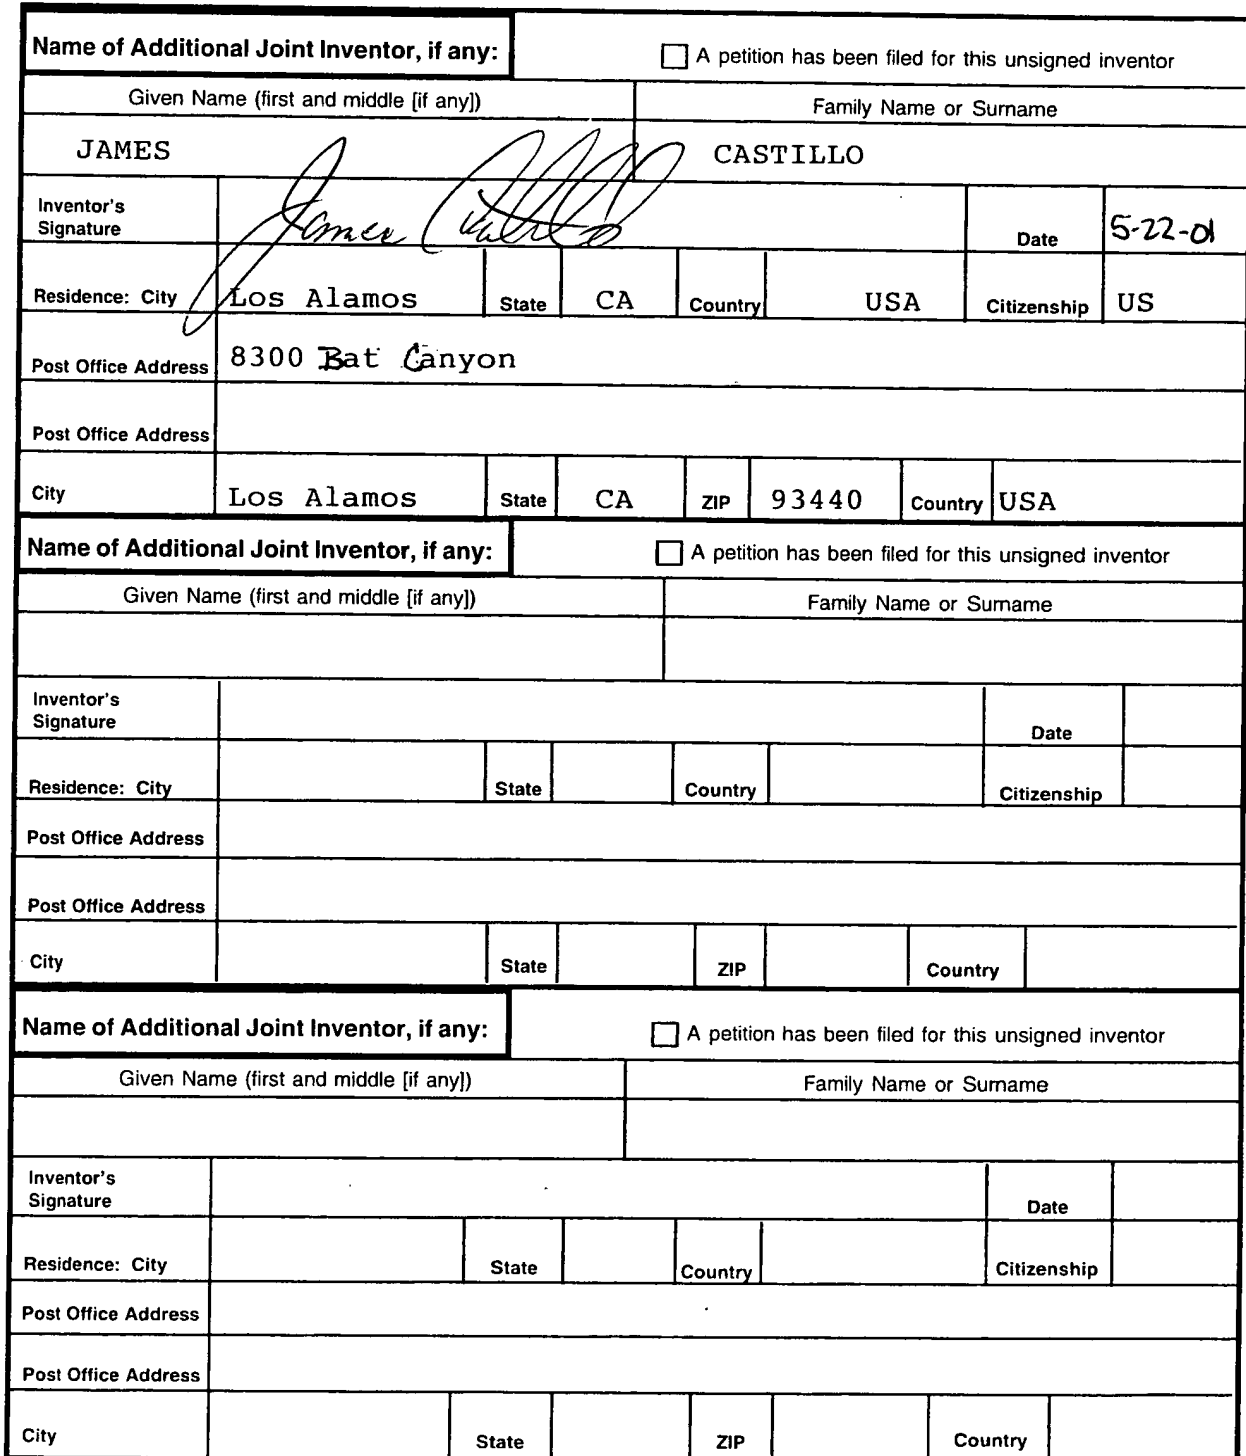 Name of Additional Joint Inventor, if any: A petition has been filed for this unsigned inventor
Given Name (first and middle [if any]) Family Name or Surname
JAMES CASTILLO
Inventor's
Signature James Castillo Date 5-22-01
Residence: City Los Alamos State CA Country USA Citizenship US
Post Office Address 8300 Bat Canyon
Post Office Address
City Los Alamos State CA ZIP 93440 Country USA
Name of Additional Joint Inventor, if any: A petition has been filed for this unsigned inventor
Given Name (first and middle [if any]) Family Name or Surname
Inventor's
Signature Date
Residence: City State Country Citizenship
Post Office Address
Post Office Address
City State ZIP Country
Name of Additional Joint Inventor, if any: A petition has been filed for this unsigned inventor
Given Name (first and middle [if any]) Family Name or Surname
Inventor's
Signature Date
Residence: City State Country Citizenship
Post Office Address
Post Office Address
City State ZIP Country